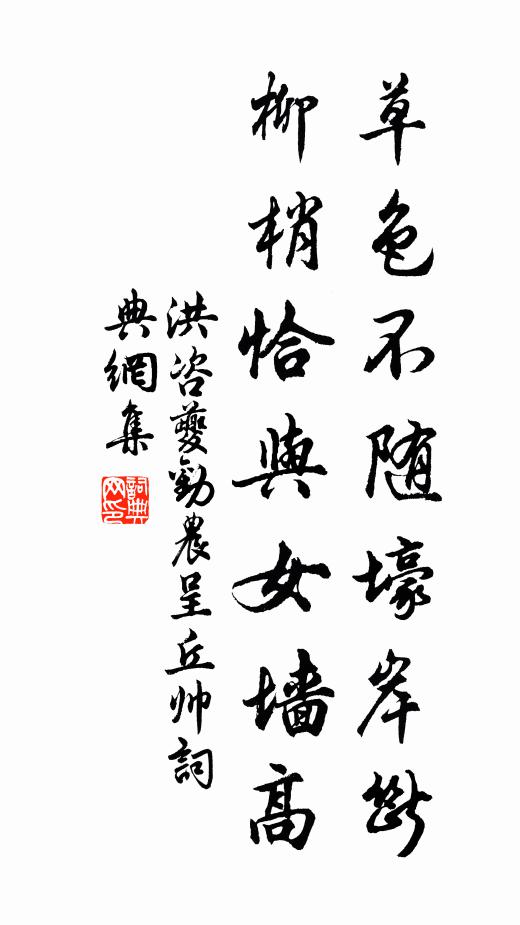 草色不随壕岸斷
柳梢恰與女墙高
洪咨夔勸農呈丘帅詞
典網集
詞典网印